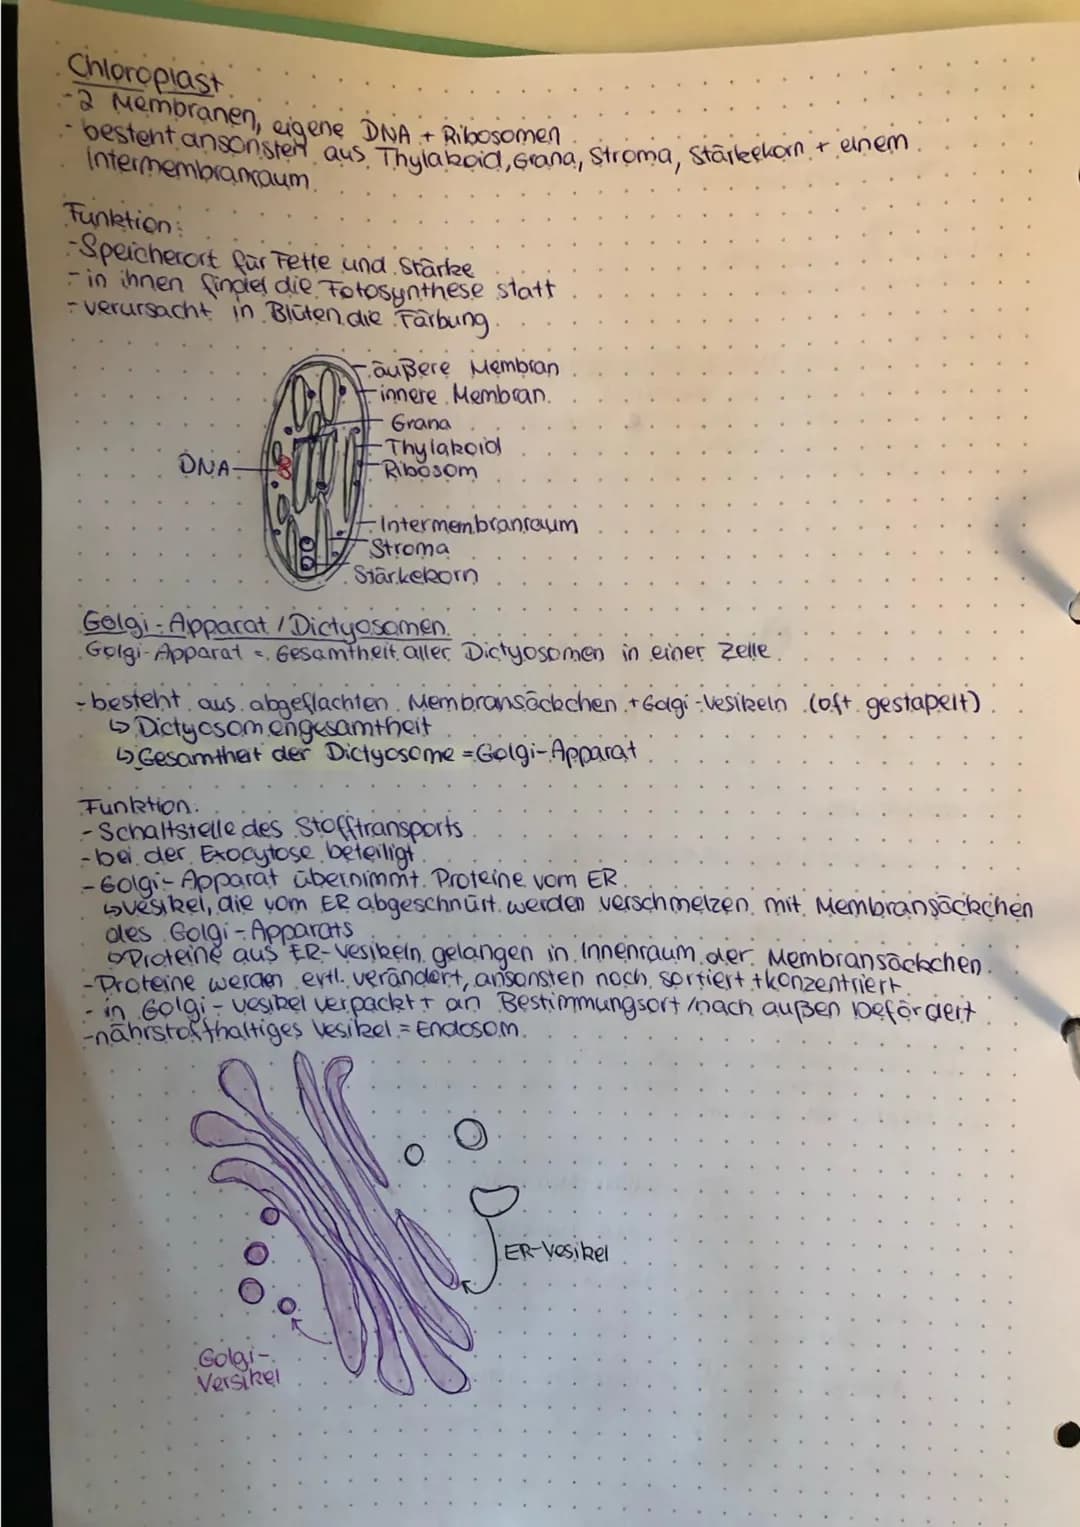 Chloroplast
- 2 Membranen, eigene DNA + Ribosomen
- besteht ansonsten aus Thylakoid, Grana, Stroma, Stärkekorn + einem
Intermembranraum
Funktion:
- Speicherort für Fette und Stärke
- in ihnen findet die Fotosynthese statt
- verursacht in Blüten die Färbung
äußere Membran
innere Membran
Grana
Thylakoid
DNA
Ribosom
Intermembranraum
Stroma
Stärkekorn
Golgi-Apparat / Dictyosomen
Golgi-Apparat = Gesamtheit aller Dictyosomen in einer Zelle
- besteht aus abgeflachten Membransäckchen + Golgi-Vesikeln (oft gestapelt)
↳ Dictyosomengesamtheit
↳ Gesamtheit der Dictyosome = Golgi-Apparat
Funktion:
- Schaltstelle des Stofftransports
- bei der Exocytose beteiligt
- Golgi-Apparat übernimmt Proteine vom ER
↳ Vesikel, die vom ER abgeschnürt werden verschmelzen mit Membransäckchen
des Golgi-Apparats
↳ Proteine aus ER-Vesikeln gelangen in Innenraum der Membransäckchen
- Proteine werden evtl. verändert, ansonsten noch sortiert + konzentriert
- in Golgi-Vesikel verpackt + an Bestimmungsort / nach außen befördert
- nährstoffhaltiges Vesikel = Endosom
ER-Vesikel
Golgi-
Versikel